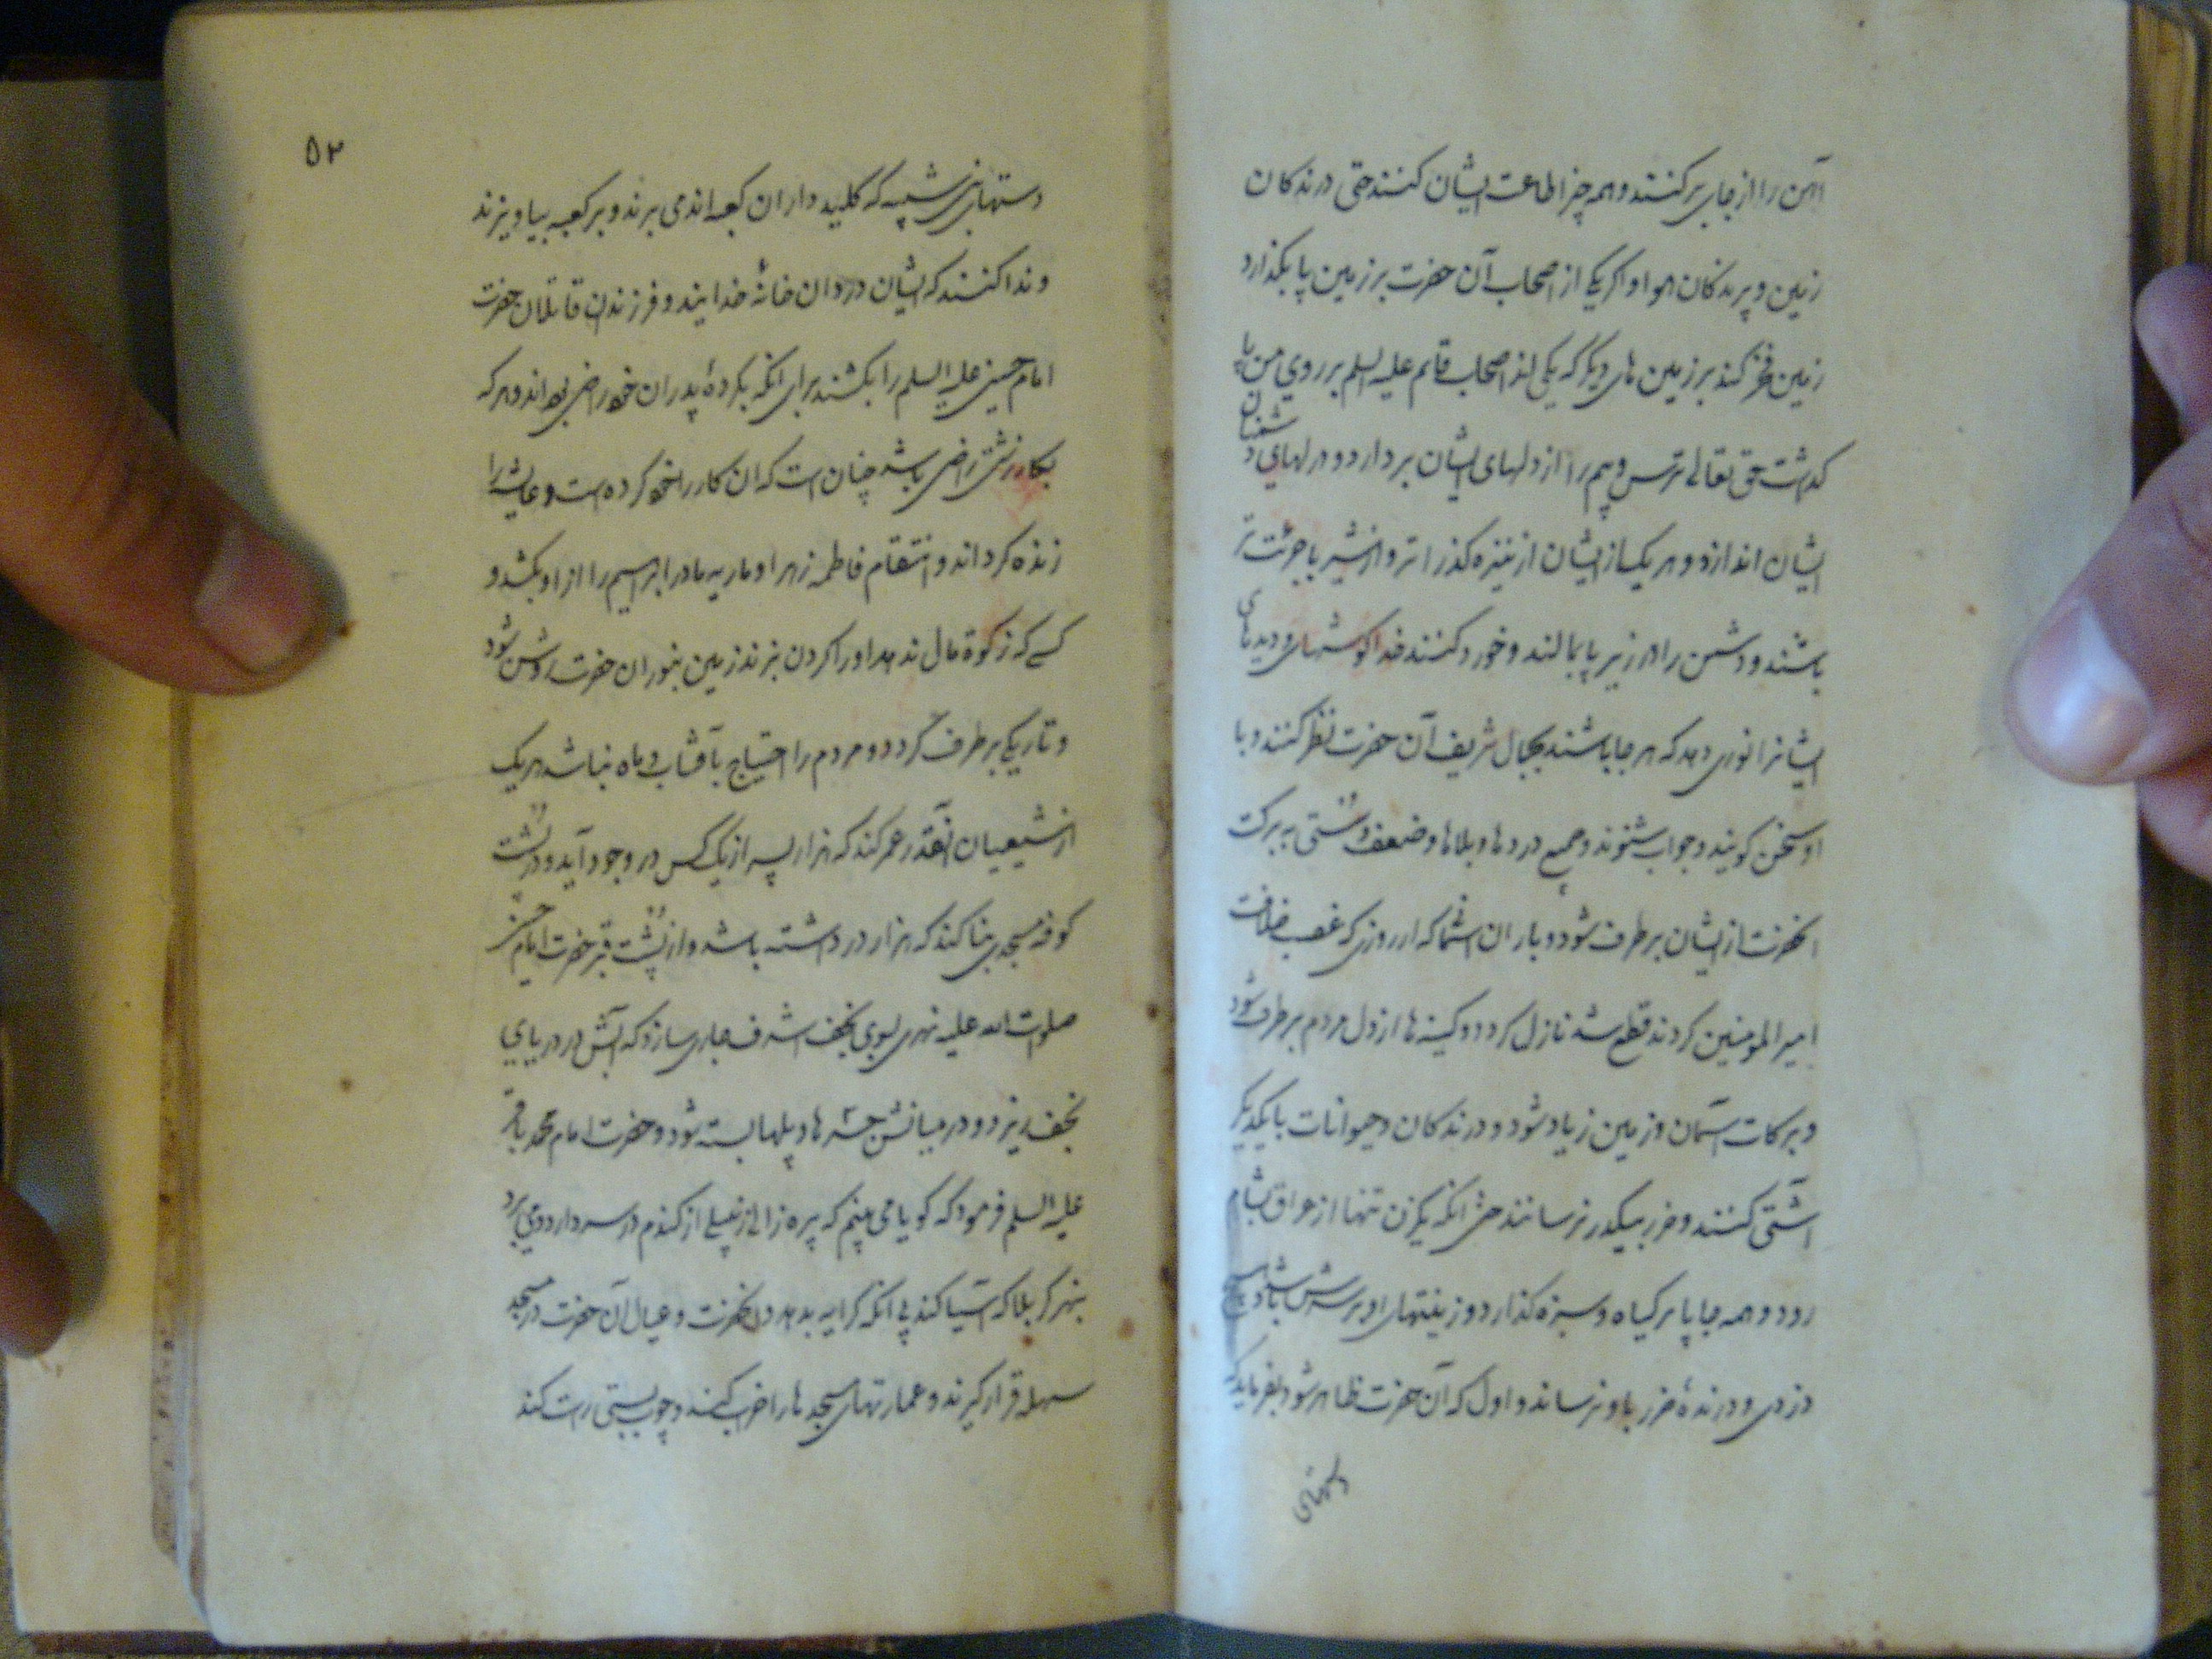 آهن را از جای برکنند و همه چیز اطاعت ایشان کنند حتی درندکان
زمین و پرندکان هوا و اکر یکی از اصحاب آن حضرت بر زمین پا بکذارد
زمین فخر کند بر زمین های دیکر که یکی از اصحاب قائم علیه السلم بر روی من پا
کذشت حق تعالی ترس و بیم را از دلهای ایشان بردارد و در دلهای دشمنان
ایشان اندازد و هر یک از ایشان از نیزه کذراتر و از شیر با جرئت تر
باشند و دشمن را در زیر پا بمالند و خورد کنند خدا کوشهای و دیدهای
ایشانرا نوری دهد که هر جا باشند بجمال شریف آن حضرت نظر کنند و با
او سخن کویند و جواب شنوند و جمیع دردها و بلاها و ضعف و سستی به برکت
انحضرت از ایشان برطرف شود و باران اسما که از روزی که غصب خلافت
امیر المومنین کردند قطع شد نازل کردد و کینه ها از دل مردم برطرف شود
و برکات آسمان و زمین زیاد شود و درندکان و حیوانات با یکدیکر
آشتی کنند و ضرر بیکدیر نرسانند حتی انکه یکزن تنها از عراق بشام
رود و همه جا پا بر کیاه و سبزه کذارد و زینتهای او بر سرش باشد
دزدی و درندهٔ ضرر باو نرساند و اول که آن حضرت ظاهر شود بفرماید که
دستهای
۵۲
دستهای بنی شیبه که کلید داران کعبه اند می برند و بر کعبه بیاویزند
و ندا کنند که ایشان دزدان خانهٔ خدایند و فرزندان قاتلان حضرت
امام حسین علیه السلم را بکشند برای انکه بکردهٔ پدران خود راضی بوده اند و هر که
بکار زشتی راضی باشد چنان است که ان کار را خود کرده است و عایشه را
زنده کرداند و انتقام فاطمه زهرا و ماریه مادر ابراهیم را از او بکشد و
کسے که زکوة مال ندهد او را کردن بزند زمین بنور ان حضرت روشن شود
و تاریکی برطرف کردد و مردم را احتیاج بآفتاب و ماه نباشد هر یک
از شیعیان آنقدر عمر کند که هزار پسر از یک کس در وجود آید و در پشت
کوفه مسجدی بنا کند که هزار در داشته باشد و از پشت قبر حضرت امام حسین
صلوات الله علیه نهری بسوی نجف اشرف جاری سازد که آبش در دریای
نجف ریزد و در میانش جسرها و پلها بسته شود و حضرت امام محمد باقر
علیه السلم فرمود که کویا می بینم که پیره زالی زنبیلی از کندم در سر دارد و می برد
بنهر کربلا که آسیا کند بی انکه کرایه بدهد و انحضرت و عیال آن حضرت در مسجد
سهله قرار کیرند و عمارتهای مسجد ها را خراب کند و چوب بستی راست کند